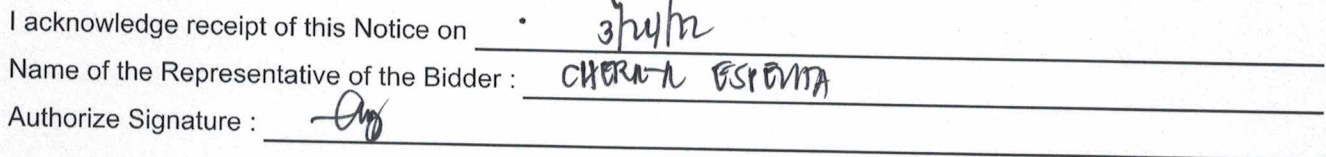 I acknowledge receipt of this Notice on 3/24/22
Name of the Representative of the Bidder :
Authorize Signature :